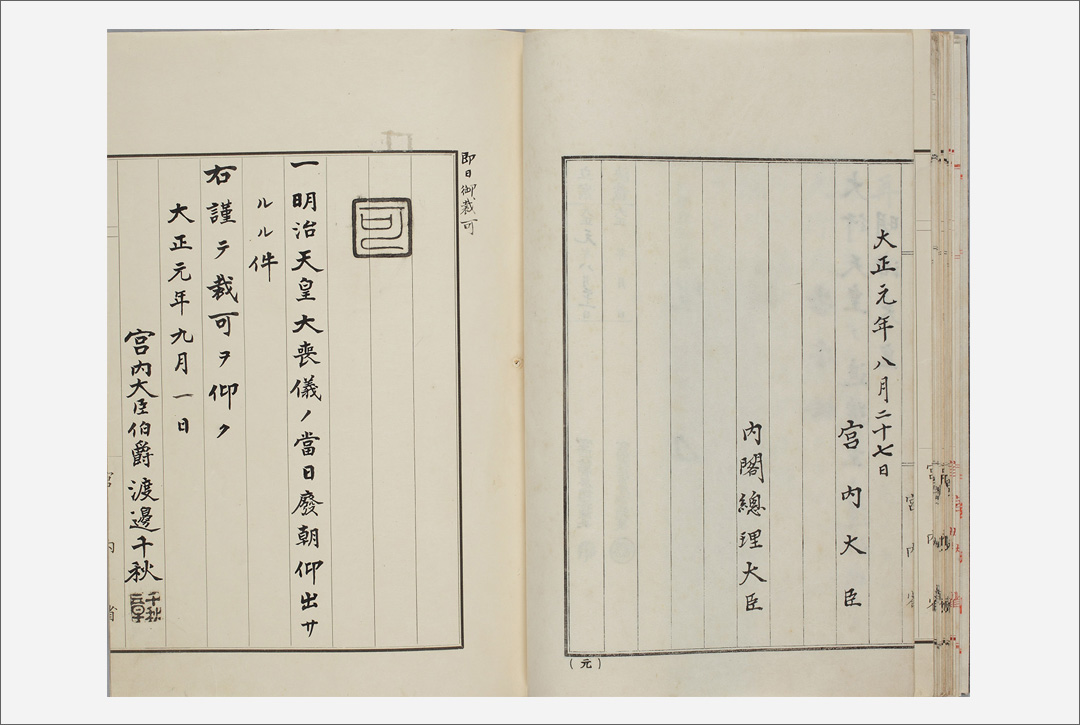 大正元年八月二十七日
宮内大臣
内閣總理大臣
(元)
即日御裁可
可
一明治天皇大喪儀ノ當日廢朝仰出サ
ルル件
右謹テ裁可ヲ仰ク
大正元年九月一日
宮内大臣伯爵渡邊千秋
宮内省